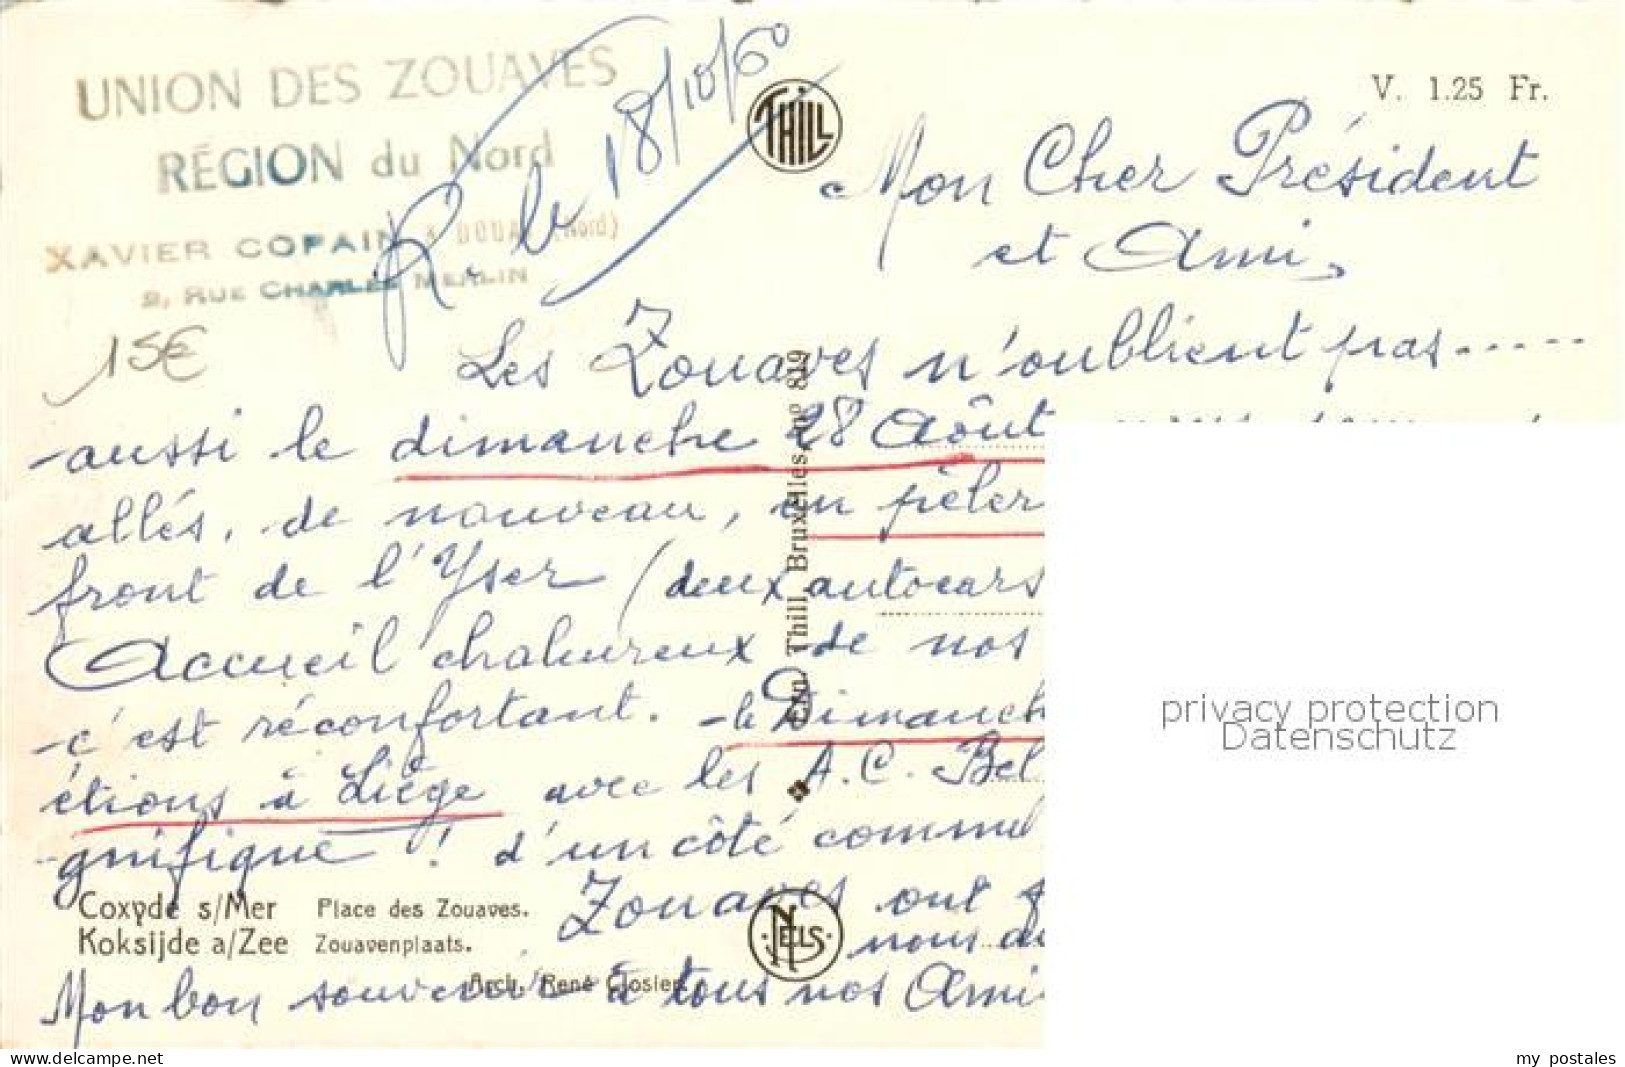 UNION DES ZOUAVES
RÉGION du Nord
XAVIER COPAIN à DOUAI (Nord)
9, RUE CHARLES MERLIN
R. le 18/10/60
15€
THILL
V. 1.25 Fr.
Mon Cher Président
et Ami,
Les Zouaves n'oublient pas.....
aussi le dimanche 28 Août
allés, de nouveau, en pèler
front de l'Yser (deux autocars
Accueil chaleureux de nos
c'est réconfortant. - le Dimanch
étions à Liège avec les A.C. Bel
gnifique ! d'un côté comme
Zouaves ont
nous
Mon bon souvenir à tous nos Ami
Coxyde s/Mer Place des Zouaves.
Koksijde a/Zee Zouavenplaats.
Arch. René Closier.
Ern. Thill, Bruxelles, N° 819
NELS
privacy protection
Datenschutz
www.ansichtskartenversand.com
my postales